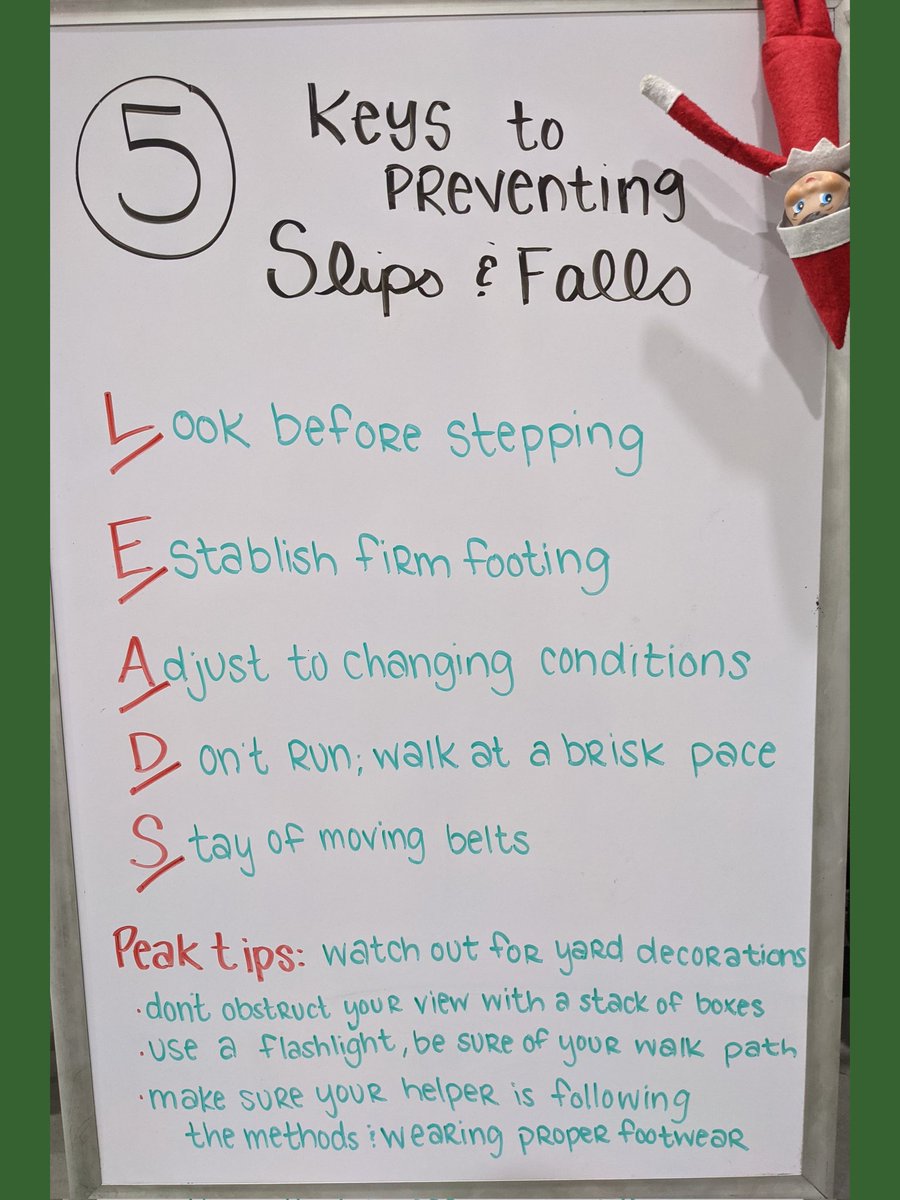 5 Keys to
PREVENTING
Slips & Falls
Look before stepping
Establish firm footing
Adjust to changing conditions
Don't Run; walk at a brisk pace
Stay of moving belts
Peak tips: watch out for yard decorations
·don't obstruct your view with a stack of boxes
·use a flashlight, be sure of your walk path
·make sure your helper is following
the methods & wearing proper footwear